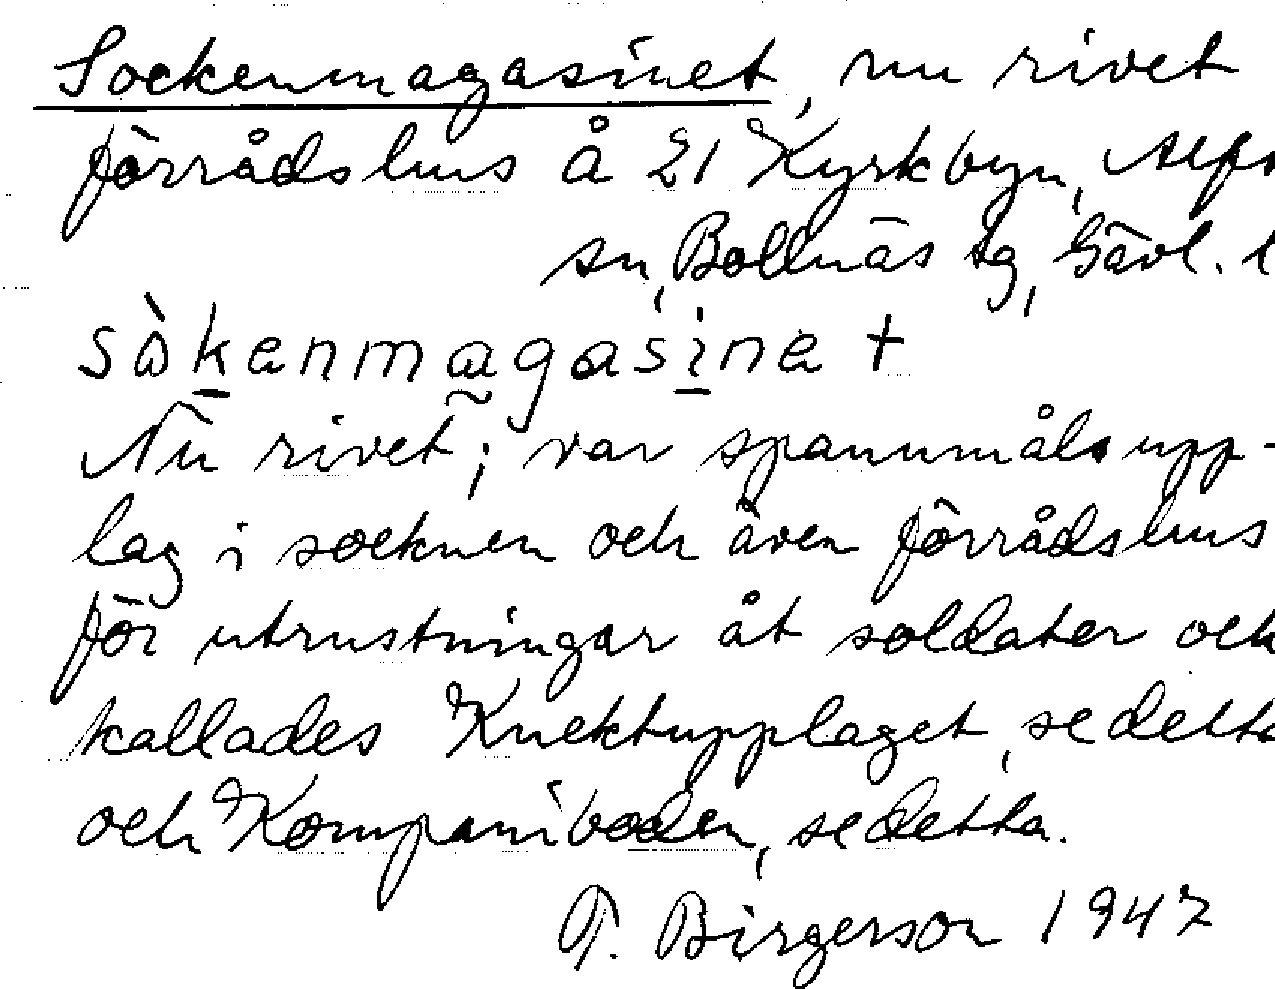 Sockenmagasinet, nu rivet
förrådshus å 21 Kyrkbyn, Alfta
sn, Bollnäs tg, Gävl. l
sòkenmagasinet
Nu rivet; var spannmålsupp-
lag i socknen och även förrådshus
för utrustningar åt soldater och
kallades Knektupplaget, se detta
och Kompaniboden, se detta.
T. Birgerson 1947